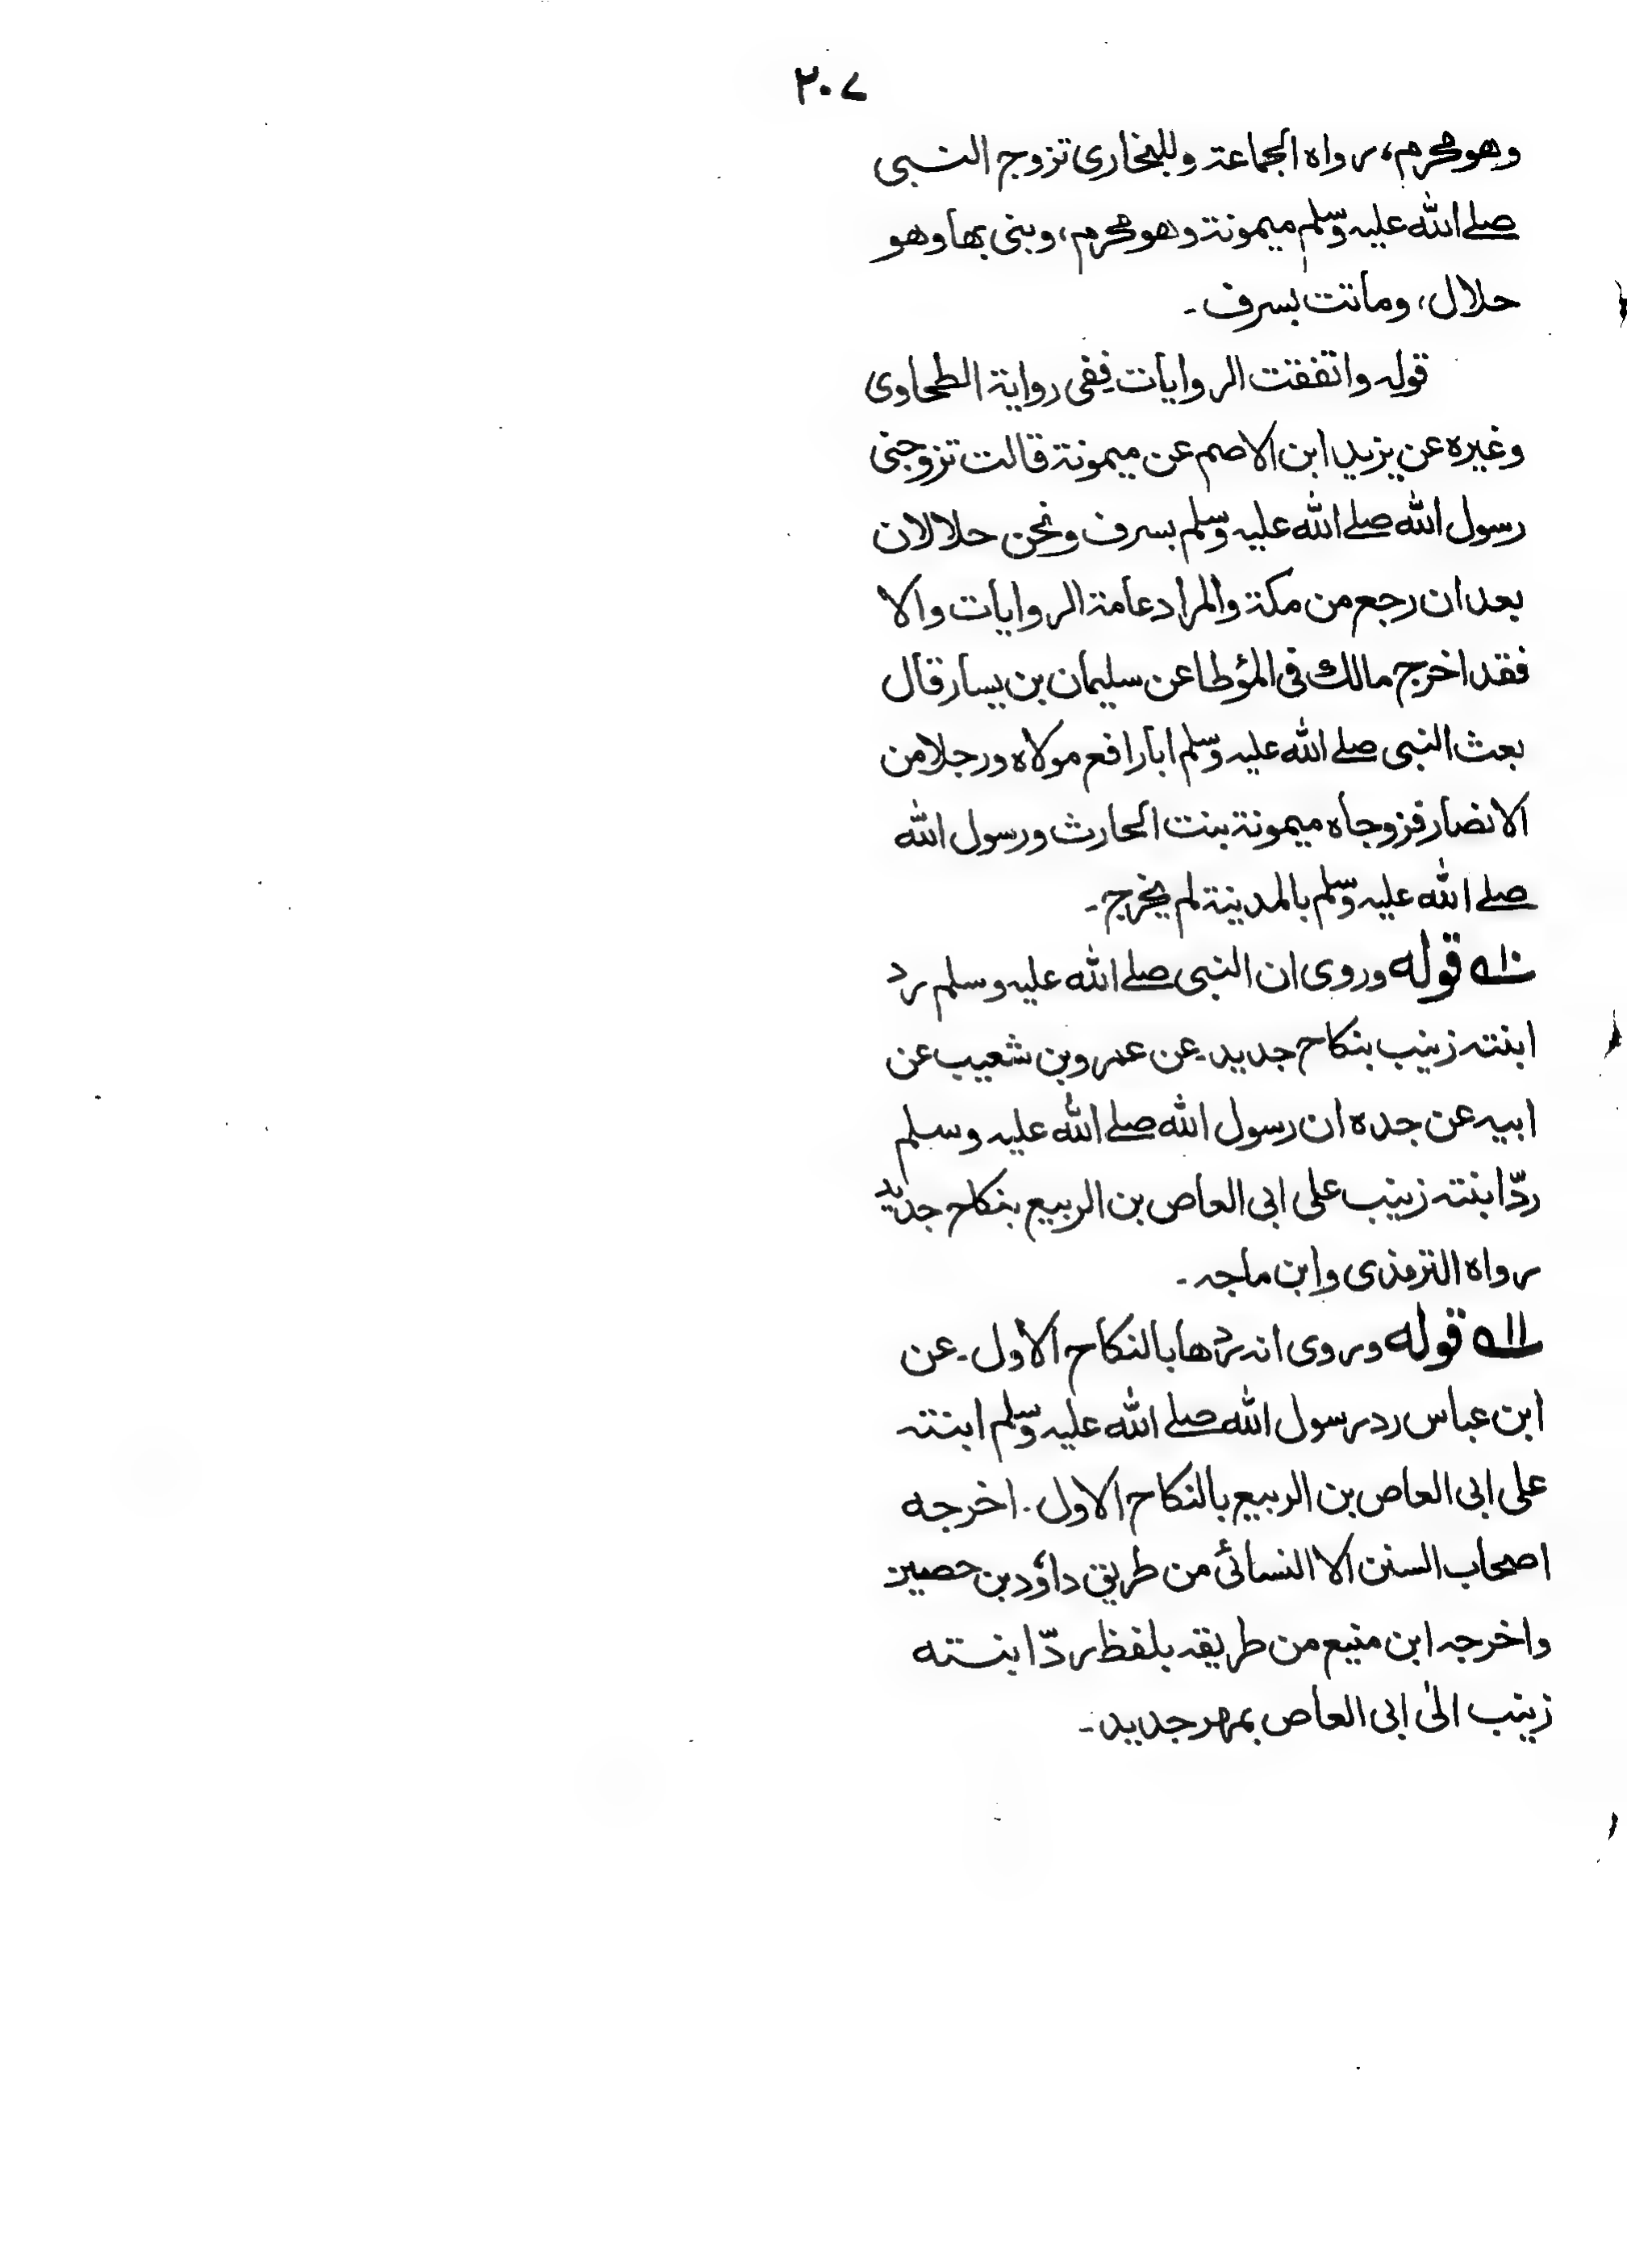 ٢٠٧
وهو محرم، رواه الجماعة وللبخاری تزوج النبی
صلے اللّٰه علیہ وسلم میمونة وهو محرم، وبنی بها وهو
حلال، وماتت بسرف۔
قولہ واتفقت الروایات ففی روایة الطحاوی
وغیرہ عن یزید ابن الاصم عن میمونة قالت تزوجنی
رسول اللّٰه صلے اللّٰه علیہ وسلم بسرف ونحن حلالان
بعد ان رجع من مکة والمراد عامة الروایات والا
فقد اخرج مالك فی المؤطا عن سلیمان بن یسار قال
بعث النبی صلے اللّٰه علیہ وسلم ابا رافع مولاہ ورجلا من
الانصار فزوجاہ میمونة بنت الحارث ورسول اللّٰه
صلے اللّٰه علیہ وسلم بالمدینة لم یخرج۔
١٠ه قوله وروی ان النبی صلے اللّٰه علیہ وسلم رد
ابنتہ زینب بنکاح جدید۔ عن عمرو بن شعیب عن
ابیہ عن جدہ ان رسول اللّٰه صلے اللّٰه علیہ وسلم
ردّ ابنتہ زینب علی ابی العاص بن الربیع بنکاح جدید
رواہ الترمذی وابن ماجہ۔
١١ه قوله وروی انہ ردها بالنکاح الاول۔ عن
ابن عباس رد رسول اللّٰه صلے اللّٰه علیہ وسلم ابنتہ
علی ابی العاص بن الربیع بالنکاح الاول۔ اخرجه
اصحاب السنن الا النسائی من طریق داؤد بن حصین
واخرجہ ابن منیع من طریقہ بلفظ ردّ ابنته
زینب الیٰ ابی العاص بمهر جدید۔